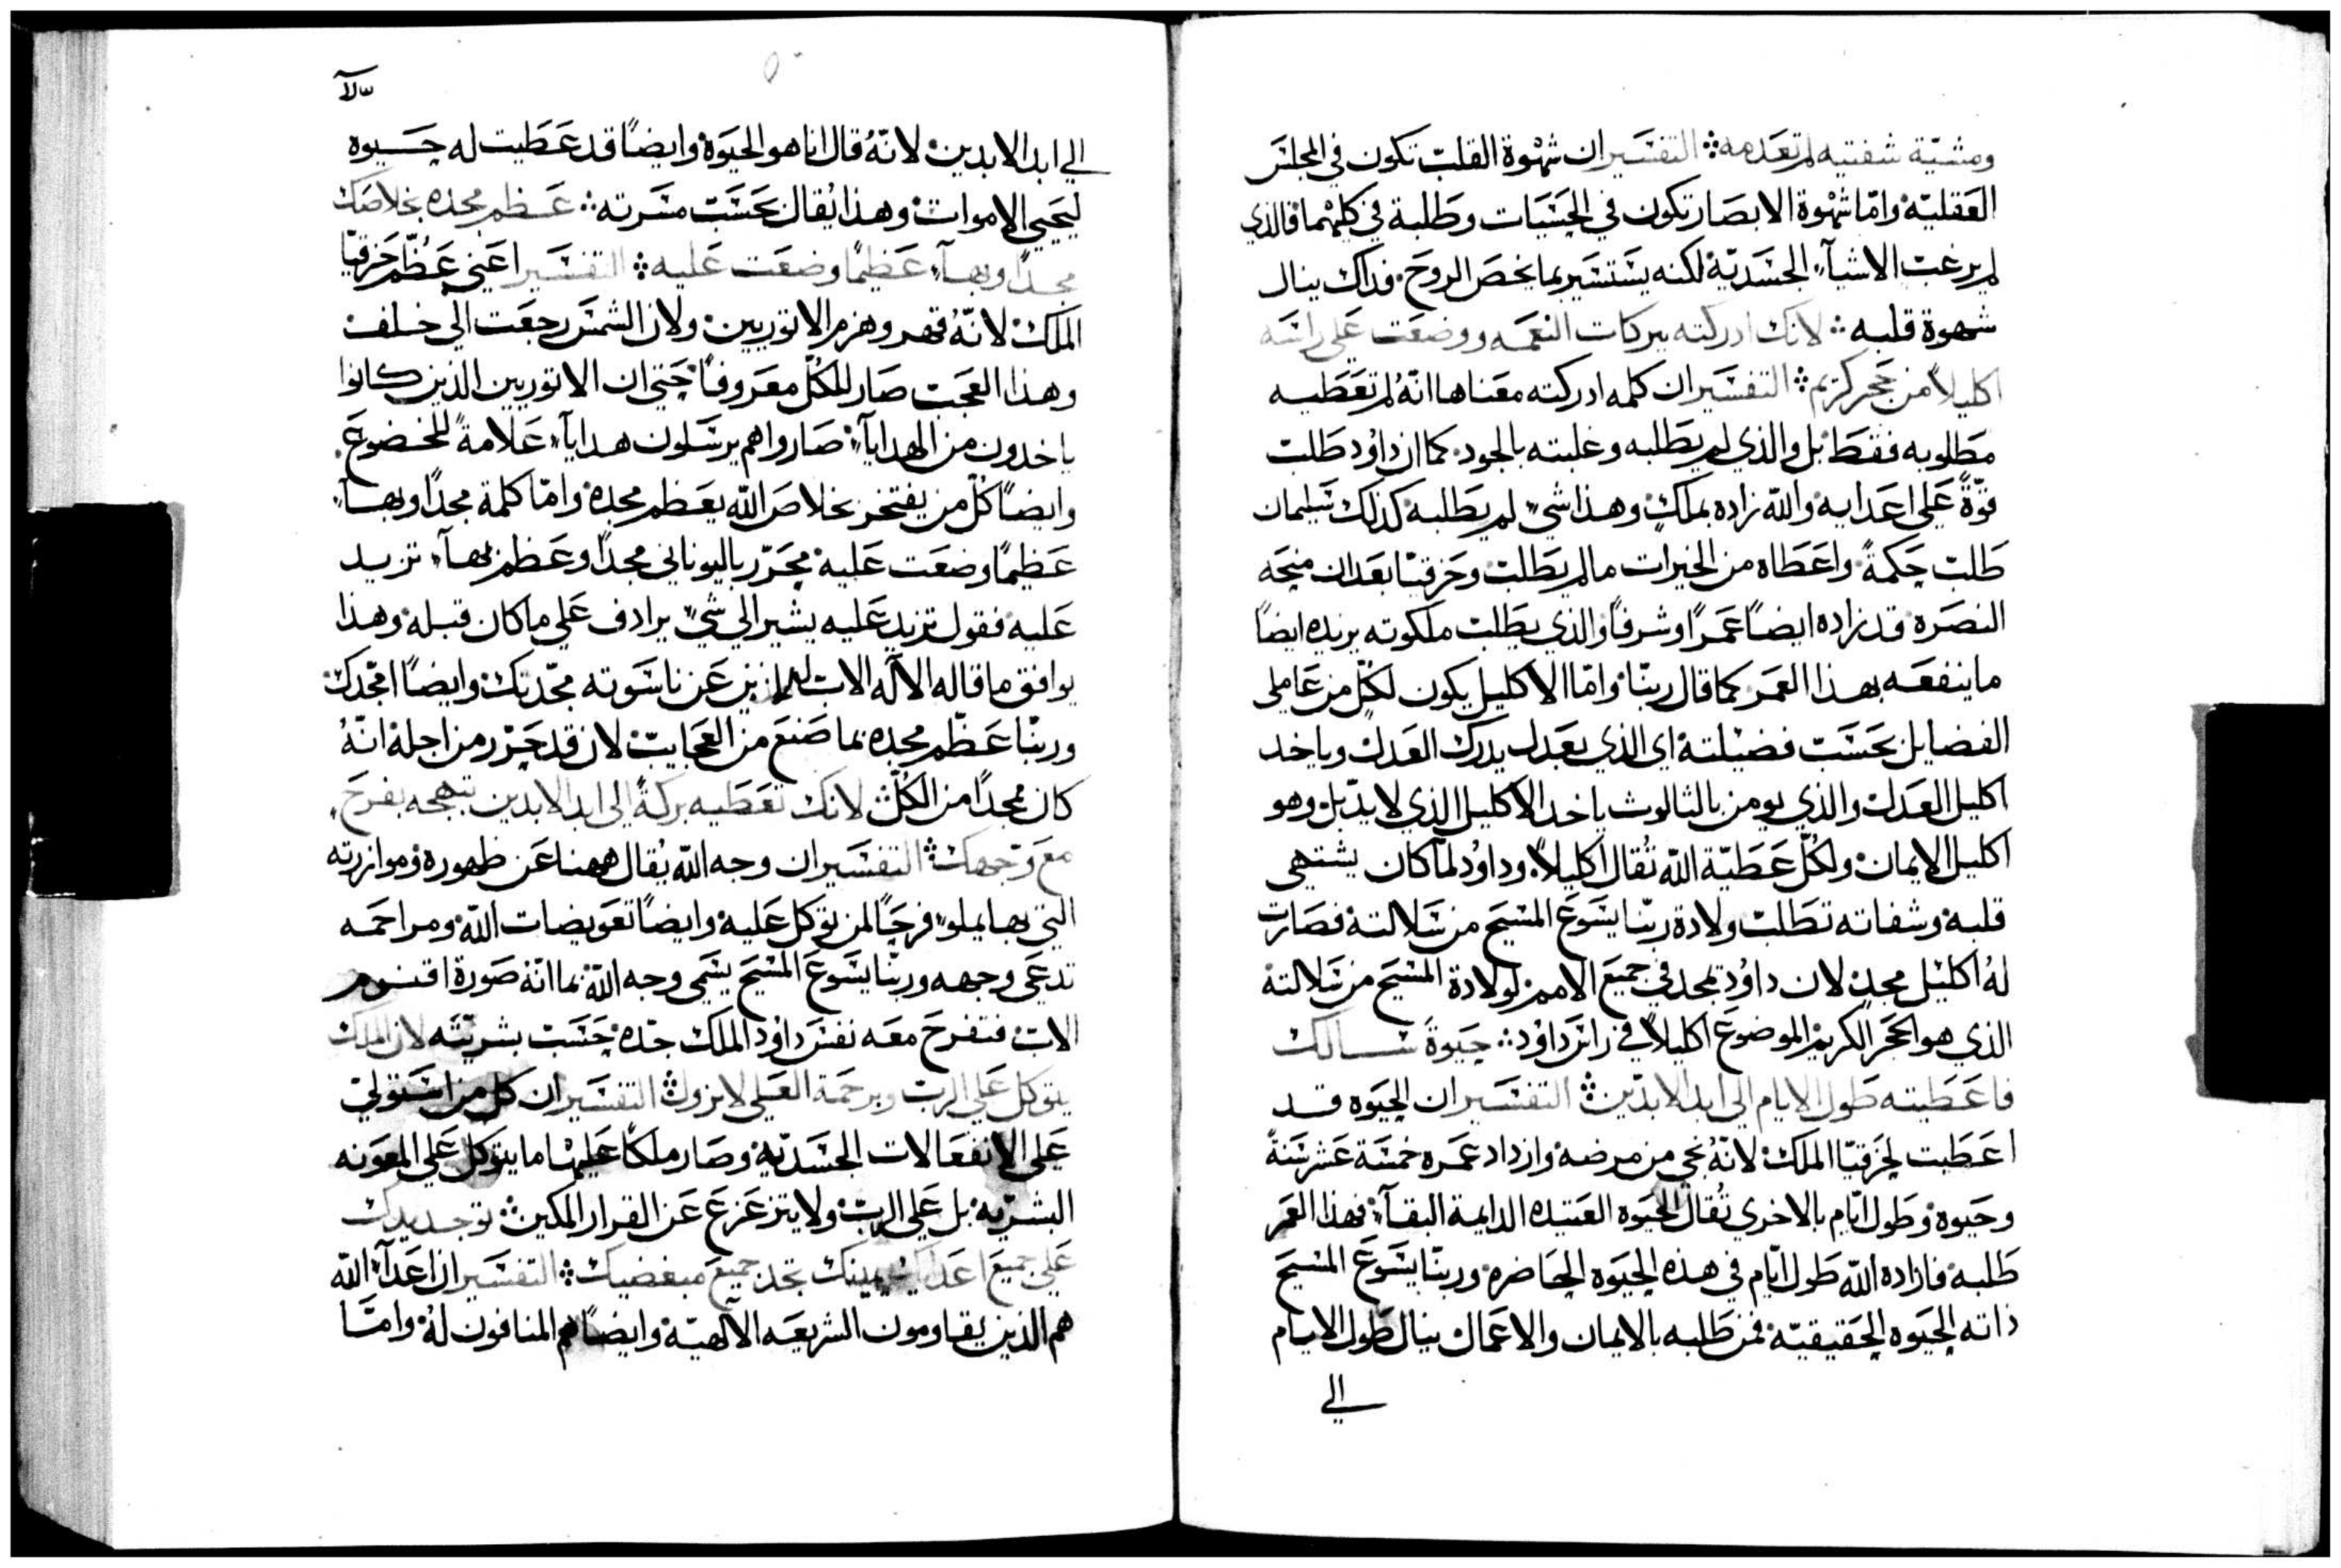 ومشيّة شفتيه لم تعدمه ܀ التفسير ان شهوة القلب تكون في المجلس
العقليّة وامّا شهوة الابصار تكون في الحسيات وطلبة في كليهما فالذي
لم يرغب الاشيآء الجسديّة لكنه يستسير بما يخص الروح فداك ينال
شهوة قلبه ܀ لانك ادركته ببركات النعمه ووضعت على راسه
اكليلاً من حجر كريم ܀ التفسير ان كلمه ادركته معناها انّهُ لم تعطيه
مطلوبه فقط بل والذي لم يطلبه وغلبته بالجود كما ان داوُد طلب
قوّةً على اعدايه والله زاده بملكٍ وهذا شيء لم يطلبه كذلك سليمان
طلب حكمةً واعطاه من الخيرات ما لم يطلب وحزقيّا بعد ان منحه
النصره قد زاده ايضاً عمراً وشرفاً والذي يطلب ملكوته يزيده ايضاً
ما ينفعه بهذا العمر كما قال ربنّا وامّا الاكليل يكون لكلّ من عاملي
الفضايل بحسب فضيلته اي الذي بعدل يدرك العدل وياخد
اكليل العدل والذي يومن بالثالوث ياخد الاكليل الذي لا يدبل وهو
اكليل الايمان ولكلّ عطيّة الله تُقال اكليلاً وداوُد لمّا كان يشتهي
قلبه وشفاته تطلب ولادة ربّنا يسوع المسيح من سلالته فصارت
لهُ اكليل مجدٍ لان داوُد تمجد في جميع الامم لولادة المسيح من سلالته
الذي هو الحجر الكريم الموضوع اكليلاً في راس داوُد ܀ حيوة سالك
فاعطيته طول الايام الى ابد الابدين ܀ التفسير ان الحيوه قد
اعطيت لحزقيّا الملك لانّهُ نجي من مرضه وازداد عمره خمسة عشر سنةً
وحيوة وطول ايّام بالاخري تُقال الحيوه العتيده الدايمة البقآء فهذا العمر
طلبه فازاده الله طول ايّام في هذه الحيوه الحاضره وربّنا يسوع المسيح
ذاته الحيوه الحقيقيّة فمن طلبه بالايمان والاعمال ينال طول الايام
الي
الي ابد الابدين لانّهُ قال انا هو الحيوة وايضاً قد عطيت له حيوه
ليحيي الاموات وهذا يُقال بحسب مسرته ܀ عظم مجده بخلاصك
مجداً وبهآء عظيماً وضعت عليه ܀ التفسير اعني عظّم حزقيّا
الملك لانّهُ قهر وهزم الاتوريين ولان الشمس رجعت الي خلف
وهذا العجب صار للكلّ معروفاً حتي ان الاتوريين الذين كانوا
ياخدون من الهدايآ صاروا هم يرسلون هدايآ علامةً للخضوع
وايضاً كلّ من يفتخر بخلاص الله يعظم مجده وامّا كلمة مجداً وبهآء
عظيماً وضعت عليه محرّر باليوناني مجداً وعظم بهآء تزيد
عليه فقول تزيد عليه يشير الي شيء يرادف على ما كان قبله وهذا
يوافق ما قاله الآله الاب عن ناسوته مجّدتك وايضاً امجّدك
وربنّا عظّم مجده بما صنع من العجايب لان قد حرّر من اجله انّهُ
كان ممجداً من الكلّ لانك تعطيه بركةً الى ابد الابدين تبهجه بفرح
مع وجهك ܀ التفسير ان وجه الله يُقال ههنا عن ظهوره وموازرته
التي بها يملوء فرحاً لمن توكل عليه وايضاً تعويضات الله ومراحمه
تدعي وجهه وربّنا يسوع المسيح يسمي وجه الله بما انّه صورة اقنوم
الاب فتفرح معه نفس داوُد الملك جدّه حسب بشريّته لان الملك
يتوكل على الرب وبرحمة العلي لا يزول ܀ التفسير ان كل من استولي
على الانفعالات الجسديّه وصار ملكاً عليها ما يتوكل على المعونه
البشريّه بل على الرب ولا يتزعزع عن القرار المكين ܀ توجد يدك
على جميع اعدايك يمينك تجد جميع مبغضيك ܀ التفسير ان اعدآء الله
هم الذين يقاومون الشريعه الآلهيّة وايضاً هم المنافون لهُ وامّا